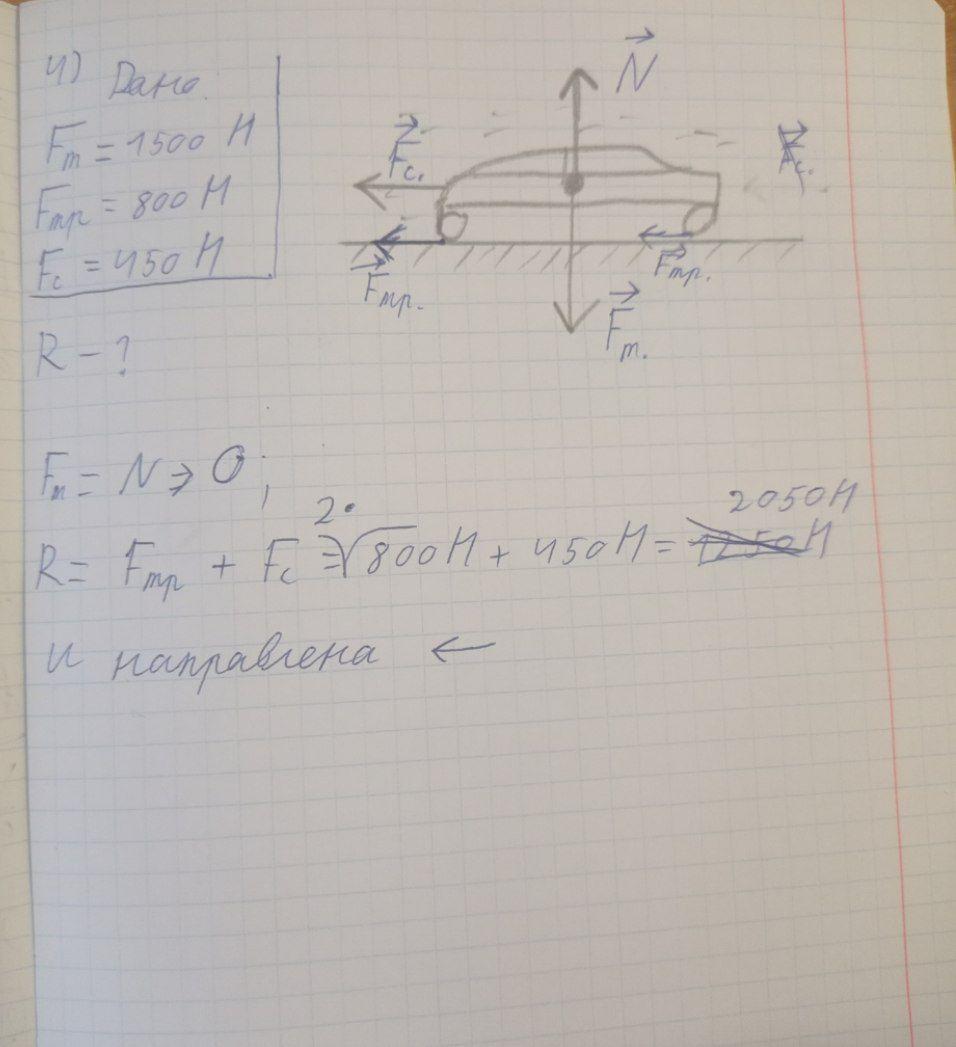 4) Дано.
Fт = 1500 Н
Fтр = 800 Н
Fс = 450 Н
R - ?
N
Fс.
Fс.
Fтр.
Fтр.
Fт.
Fт = N => 0;
2050 Н
R = Fтр + Fс = 2·800 Н + 450 Н = 1250 Н
и направлена ←